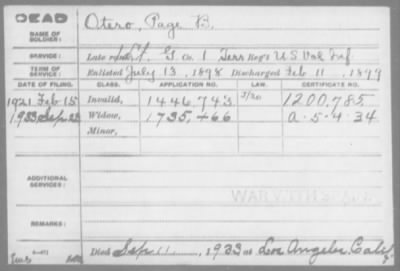 DEAD
NAME OF SOLDIER: Otero, Page B.
SERVICE: Late rank, G Co. 1 Terr Reg't U S Vol Inf
TERM OF SERVICE: Enlisted July 13, 1898 Discharged Feb 11, 1899
DATE OF FILING. CLASS. APPLICATION NO. LAW. CERTIFICATE NO.
1921 Feb 15 Invalid, 1446,743 1200,785
1933 Sep Widow, 1735,466 a-5-4-34
Minor,
ADDITIONAL SERVICES:
WAR WITH SPAIN
REMARKS:
Died Sep 11, 1933 at Los Angeles, Calif